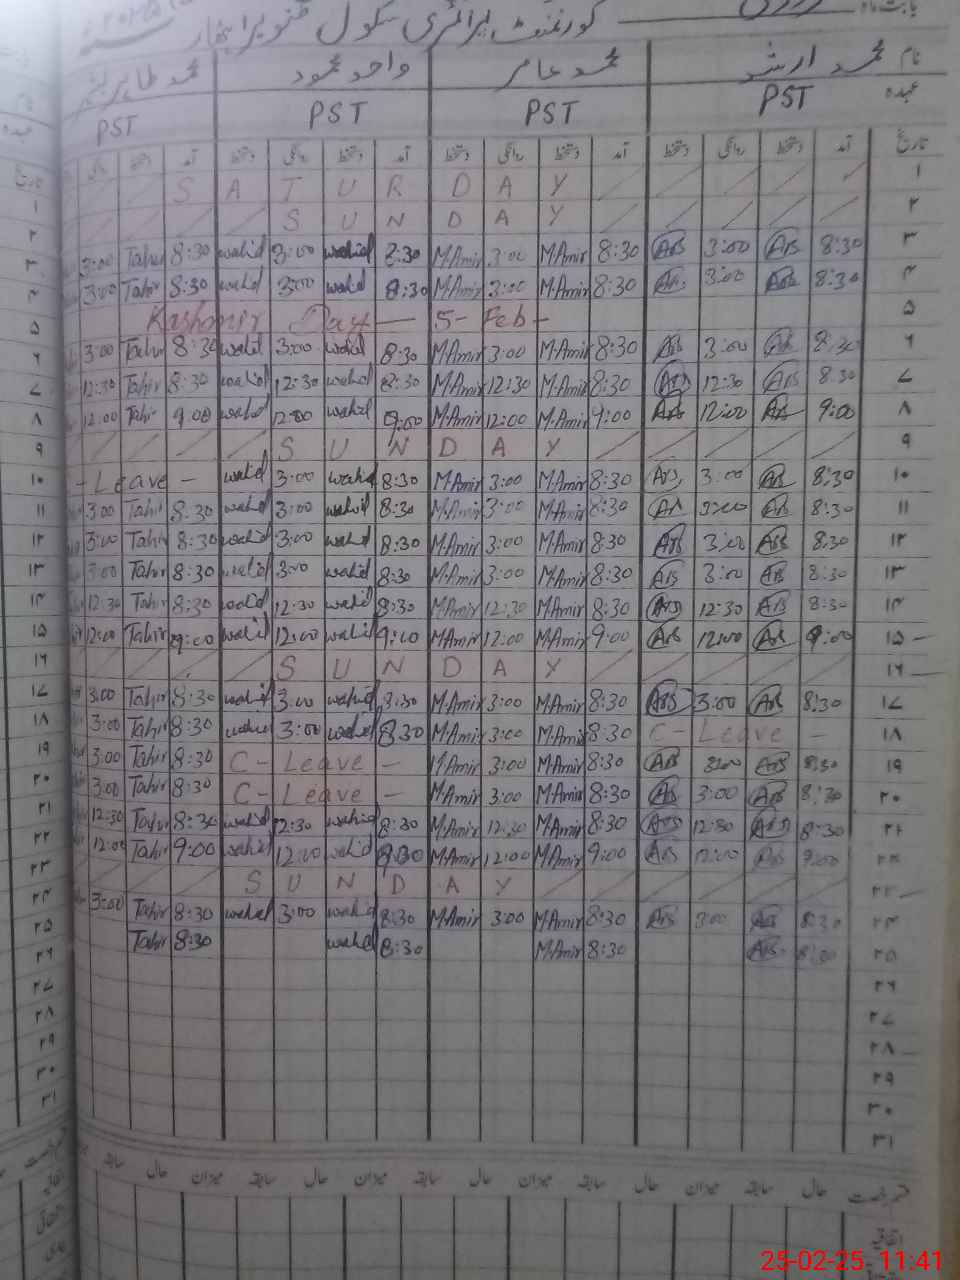 بابت ماہ
گورنمنٹ پرائمری سکول
نام محمد ارشد محمد عامر واحد محمود محمد طاہر
عہدہ PST PST PST PST
تاریخ آمد دستخط روانگی دستخط آمد دستخط روانگی دستخط آمد دستخط روانگی دستخط آمد دستخط روانگی
۱ S A T U R D A Y
۲ S U N D A Y
3:00 Tahir 8:30 wahid 3:00 wahid 8:30 M.Amir 3:00 M.Amir 8:30 Ars 3:00 Ars 8:30 ۳
3:00 Tahir 8:30 wahid 3:00 wahid 8:30 M.Amir 3:00 M.Amir 8:30 Ars 3:00 Ars 8:30 ۴
Kashmir Day — 5 - Feb - ۵
3:00 Tahir 8:30 wahid 3:00 wahid 8:30 M.Amir 3:00 M.Amir 8:30 Ars 3:00 Ars 8:30 ۶
12:30 Tahir 8:30 wahid 12:30 wahid 8:30 M.Amir 12:30 M.Amir 8:30 Ars 12:30 Ars 8:30 ۷
12:00 Tahir 9:00 wahid 12:00 wahid 9:00 M.Amir 12:00 M.Amir 9:00 Ars 12:00 Ars 9:00 ۸
S U N D A Y ۹
- Leave - wahid 3:00 wahid 8:30 M.Amir 3:00 M.Amir 8:30 Ars 3:00 Ars 8:30 ۱۰
3:00 Tahir 8:30 wahid 3:00 wahid 8:30 M.Amir 3:00 M.Amir 8:30 Ars 3:00 Ars 8:30 ۱۱
3:00 Tahir 8:30 wahid 3:00 wahid 8:30 M.Amir 3:00 M.Amir 8:30 Ars 3:00 Ars 8:30 ۱۲
3:00 Tahir 8:30 wahid 3:00 wahid 8:30 M.Amir 3:00 M.Amir 8:30 Ars 3:00 Ars 8:30 ۱۳
12:30 Tahir 8:30 wahid 12:30 wahid 8:30 M.Amir 12:30 M.Amir 8:30 Ars 12:30 Ars 8:30 ۱۴
12:00 Tahir 9:00 wahid 12:00 wahid 9:00 M.Amir 12:00 M.Amir 9:00 Ars 12:00 Ars 9:00 ۱۵
S U N D A Y ۱۶
3:00 Tahir 8:30 wahid 3:00 wahid 8:30 M.Amir 3:00 M.Amir 8:30 Ars 3:00 Ars 8:30 ۱۷
3:00 Tahir 8:30 wahid 3:00 wahid 8:30 M.Amir 3:00 M.Amir 8:30 C - Leave - ۱۸
3:00 Tahir 8:30 C - Leave - M.Amir 3:00 M.Amir 8:30 Ars 3:00 Ars 8:30 ۱۹
3:00 Tahir 8:30 C - Leave - M.Amir 3:00 M.Amir 8:30 Ars 3:00 Ars 8:30 ۲۰
12:30 Tahir 8:30 wahid 12:30 wahid 8:30 M.Amir 12:30 M.Amir 8:30 Ars 12:30 Ars 8:30 ۲۱
12:00 Tahir 9:00 wahid 12:00 wahid M.Amir 12:00 M.Amir 9:00 Ars 12:00 Ars 9:00 ۲۲
S U N D A Y ۲۳
3:00 Tahir 8:30 wahid 3:00 wahid 8:30 M.Amir 3:00 M.Amir 8:30 Ars 3:00 Ars 8:30 ۲۴
Tahir 8:30 wahid 8:30 M.Amir 8:30 Ars 8:30 ۲۵
۲۶
۲۷
۲۸
۲۹
۳۰
۳۱
قسم رخصت حال سابقہ میزان حال سابقہ میزان حال سابقہ میزان حال سابقہ
اتفاقیہ
25-02-25 11:41